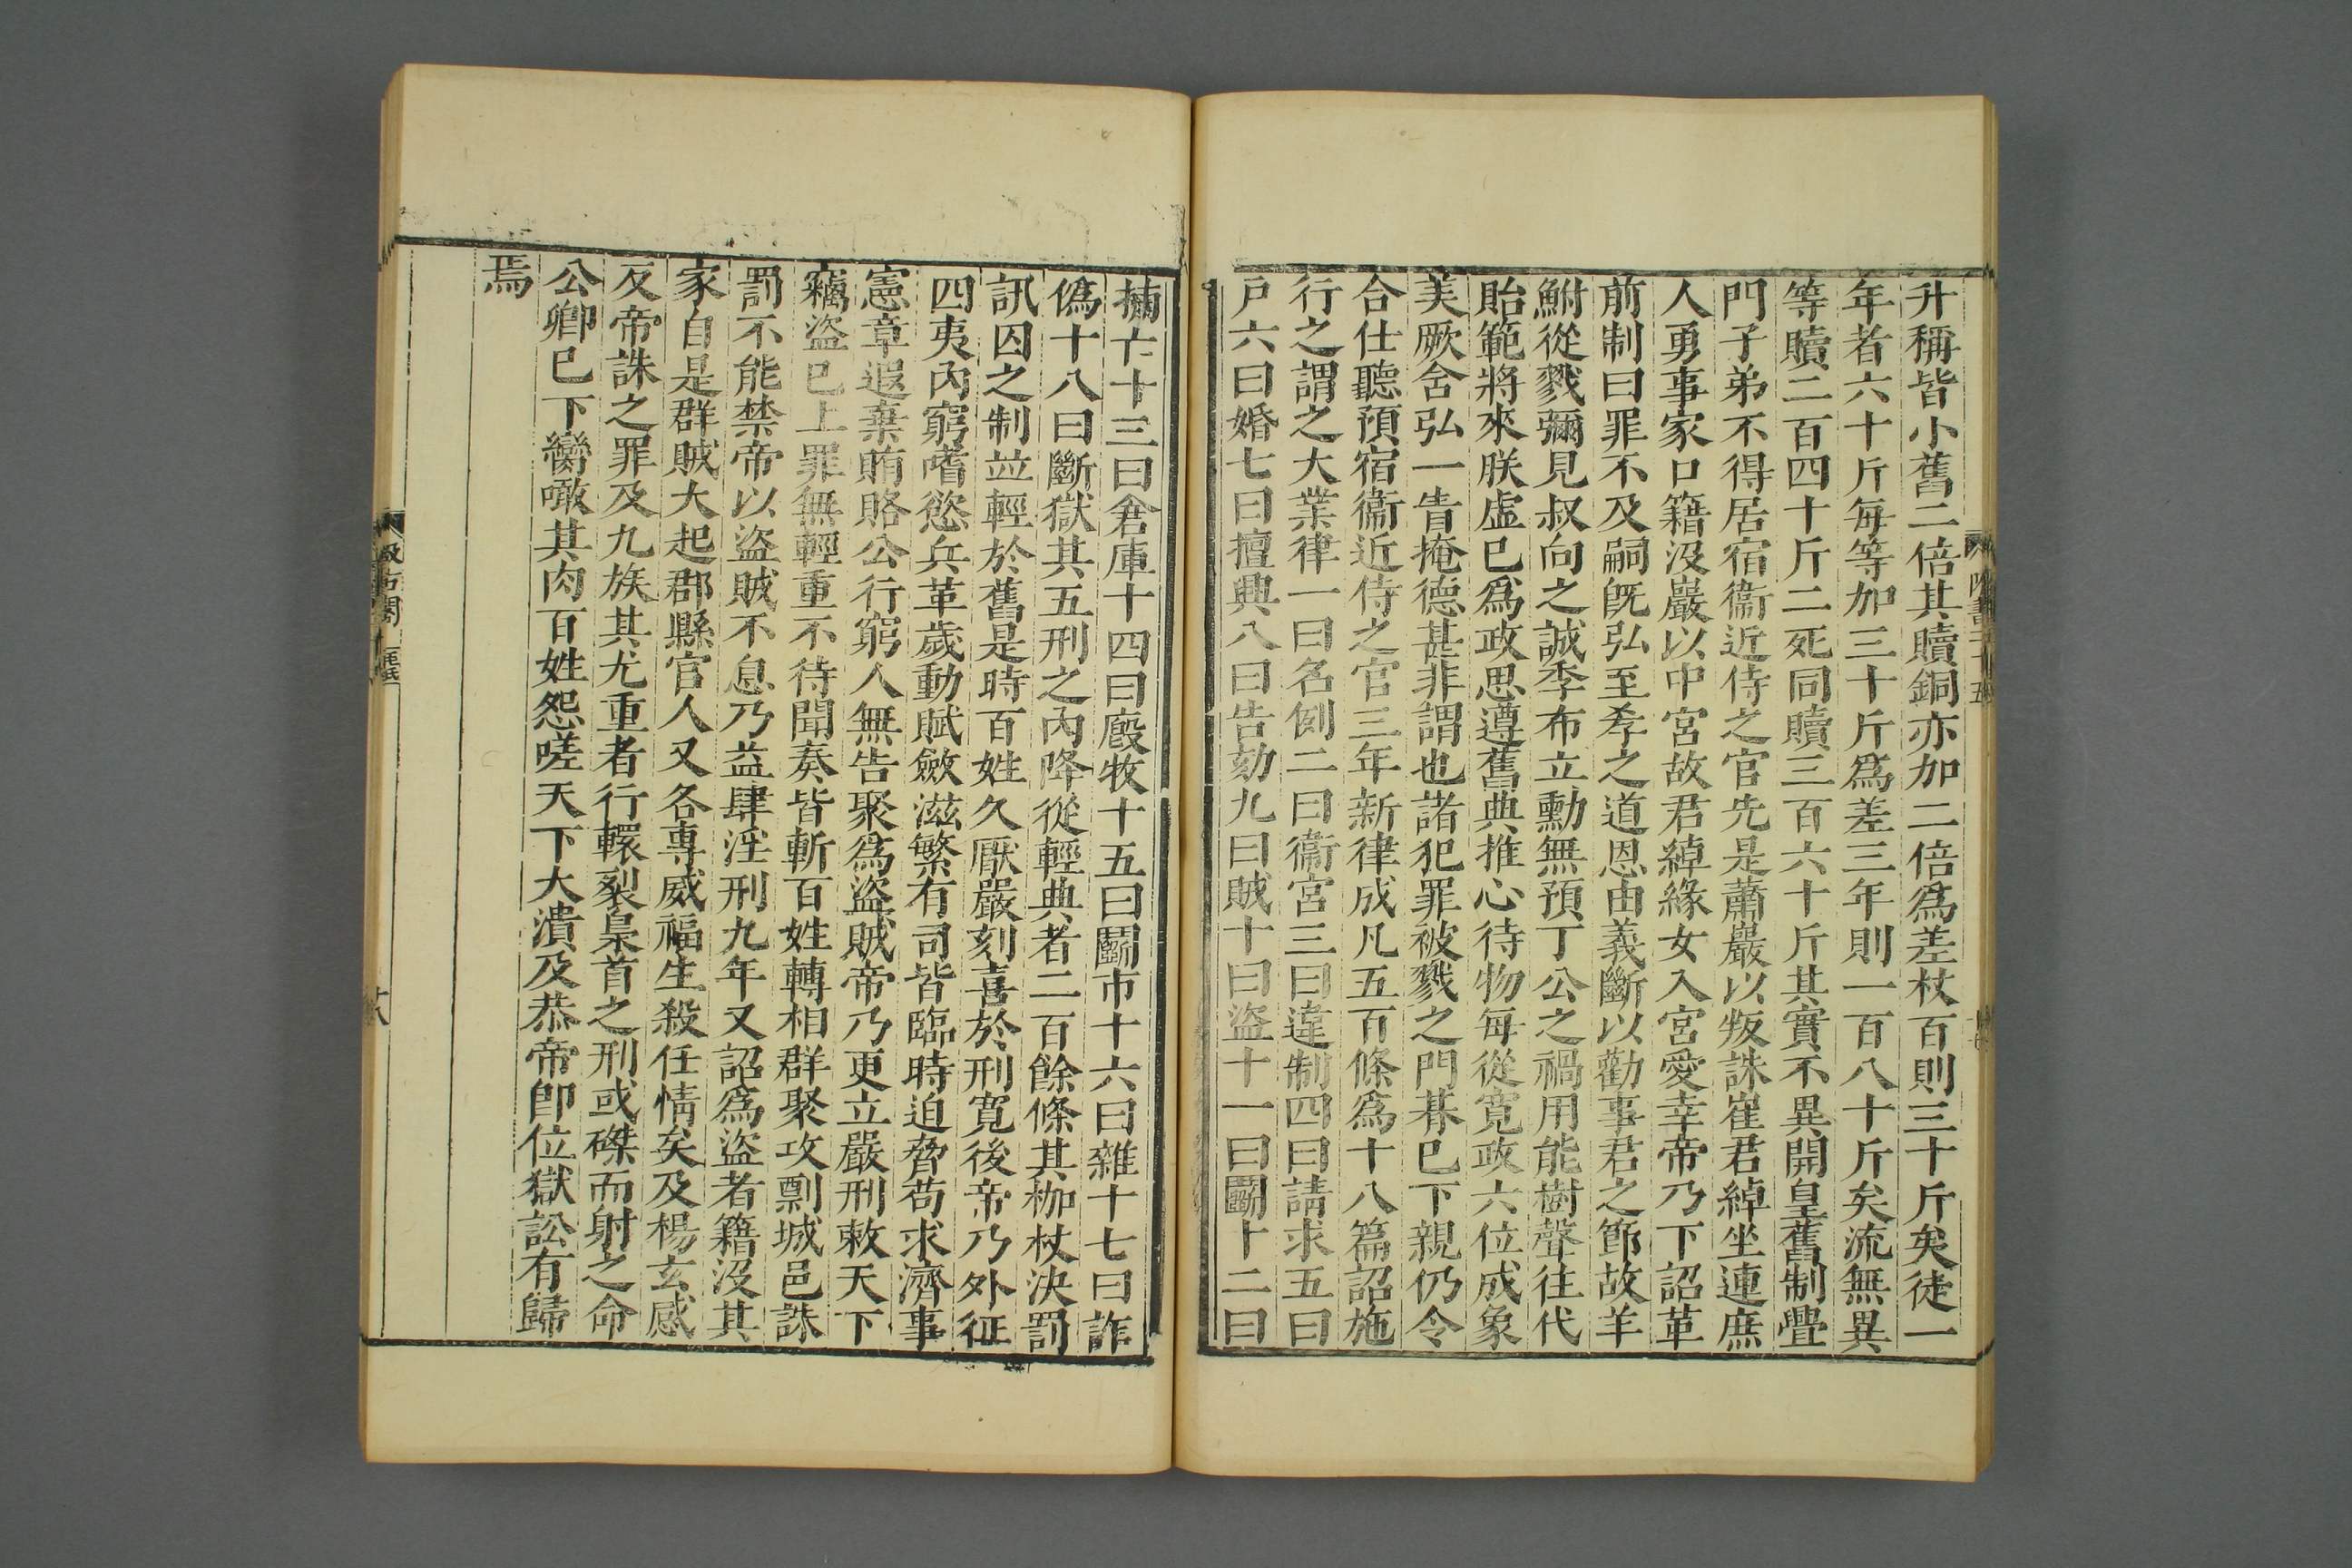 升稱皆小舊二倍其贖銅亦加二倍爲差杖百則三十斤矣徒一
年者六十斤每等加三十斤爲差三年則一百八十斤矣流無異
等贖二百四十斤二死同贖三百六十斤其實不異開皇舊制疊
門子弟不得居宿衞近侍之官先是蕭巖以叛誅崔君綽坐連庶
人勇事家口籍沒巖以中宮故君綽緣女入宮愛幸帝乃下詔革
前制曰罪不及嗣旣弘至孝之道恩由義斷以勸事君之節故羊
鮒從戮彌見叔向之誠季布立勳無預丁公之禍用能樹聲往代
貽範將來朕虛已爲政思遵舊典推心待物每從寬政六位成象
美厥含弘一眚掩德甚非謂也諸犯罪被戮之門朞已下親仍令
合仕聽預宿衞近侍之官三年新律成凡五百條爲十八篇詔施
行之謂之大業律一曰名例二曰衞宮三曰違制四曰請求五曰
戶六曰婚七曰擅興八曰告劾九曰賊十曰盜十一曰鬭十二曰
捕亡十三曰倉庫十四曰廄牧十五曰關市十六曰雜十七曰詐
僞十八曰斷獄其五刑之內降從輕典者二百餘條其枷杖決罰
訊囚之制並輕於舊是時百姓久厭嚴刻喜於刑寬後帝乃外征
四夷內窮嗜慾兵革歲動賦斂滋繁有司皆臨時迫脅苟求濟事
憲章遐棄賄賂公行窮人無告聚爲盜賊帝乃更立嚴刑敕天下
竊盜已上罪無輕重不待聞奏皆斬百姓轉相群聚攻剽城邑誅
罰不能禁帝以盜賊不息乃益肆淫刑九年又詔爲盜者籍沒其
家自是群賊大起郡縣官人又各專威福生殺任情矣及楊玄感
反帝誅之罪及九族其尤重者行轘裂梟首之刑或磔而射之命
公卿已下臠噉其肉百姓怨嗟天下大潰及恭帝卽位獄訟有歸
焉
汲古閣
十八